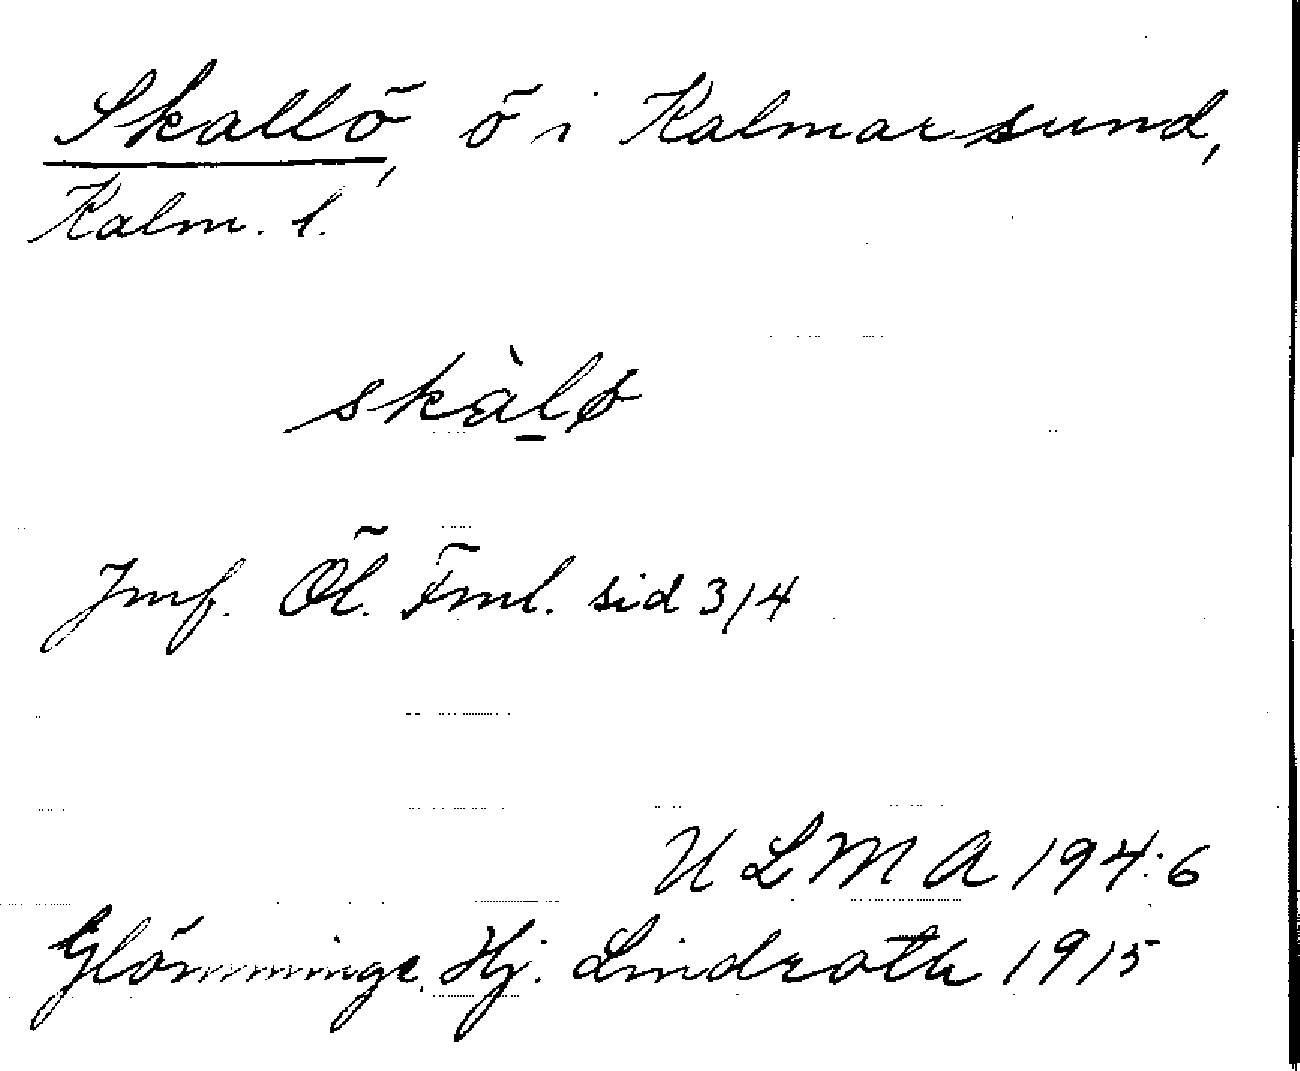 Skallö, ö i Kalmarsund,
Kalm. l.
skàl̲ø
Jmf. Öl. Fml. sid 314
ULMA 194:6
Glömminge. Hj. Lindroth 1915